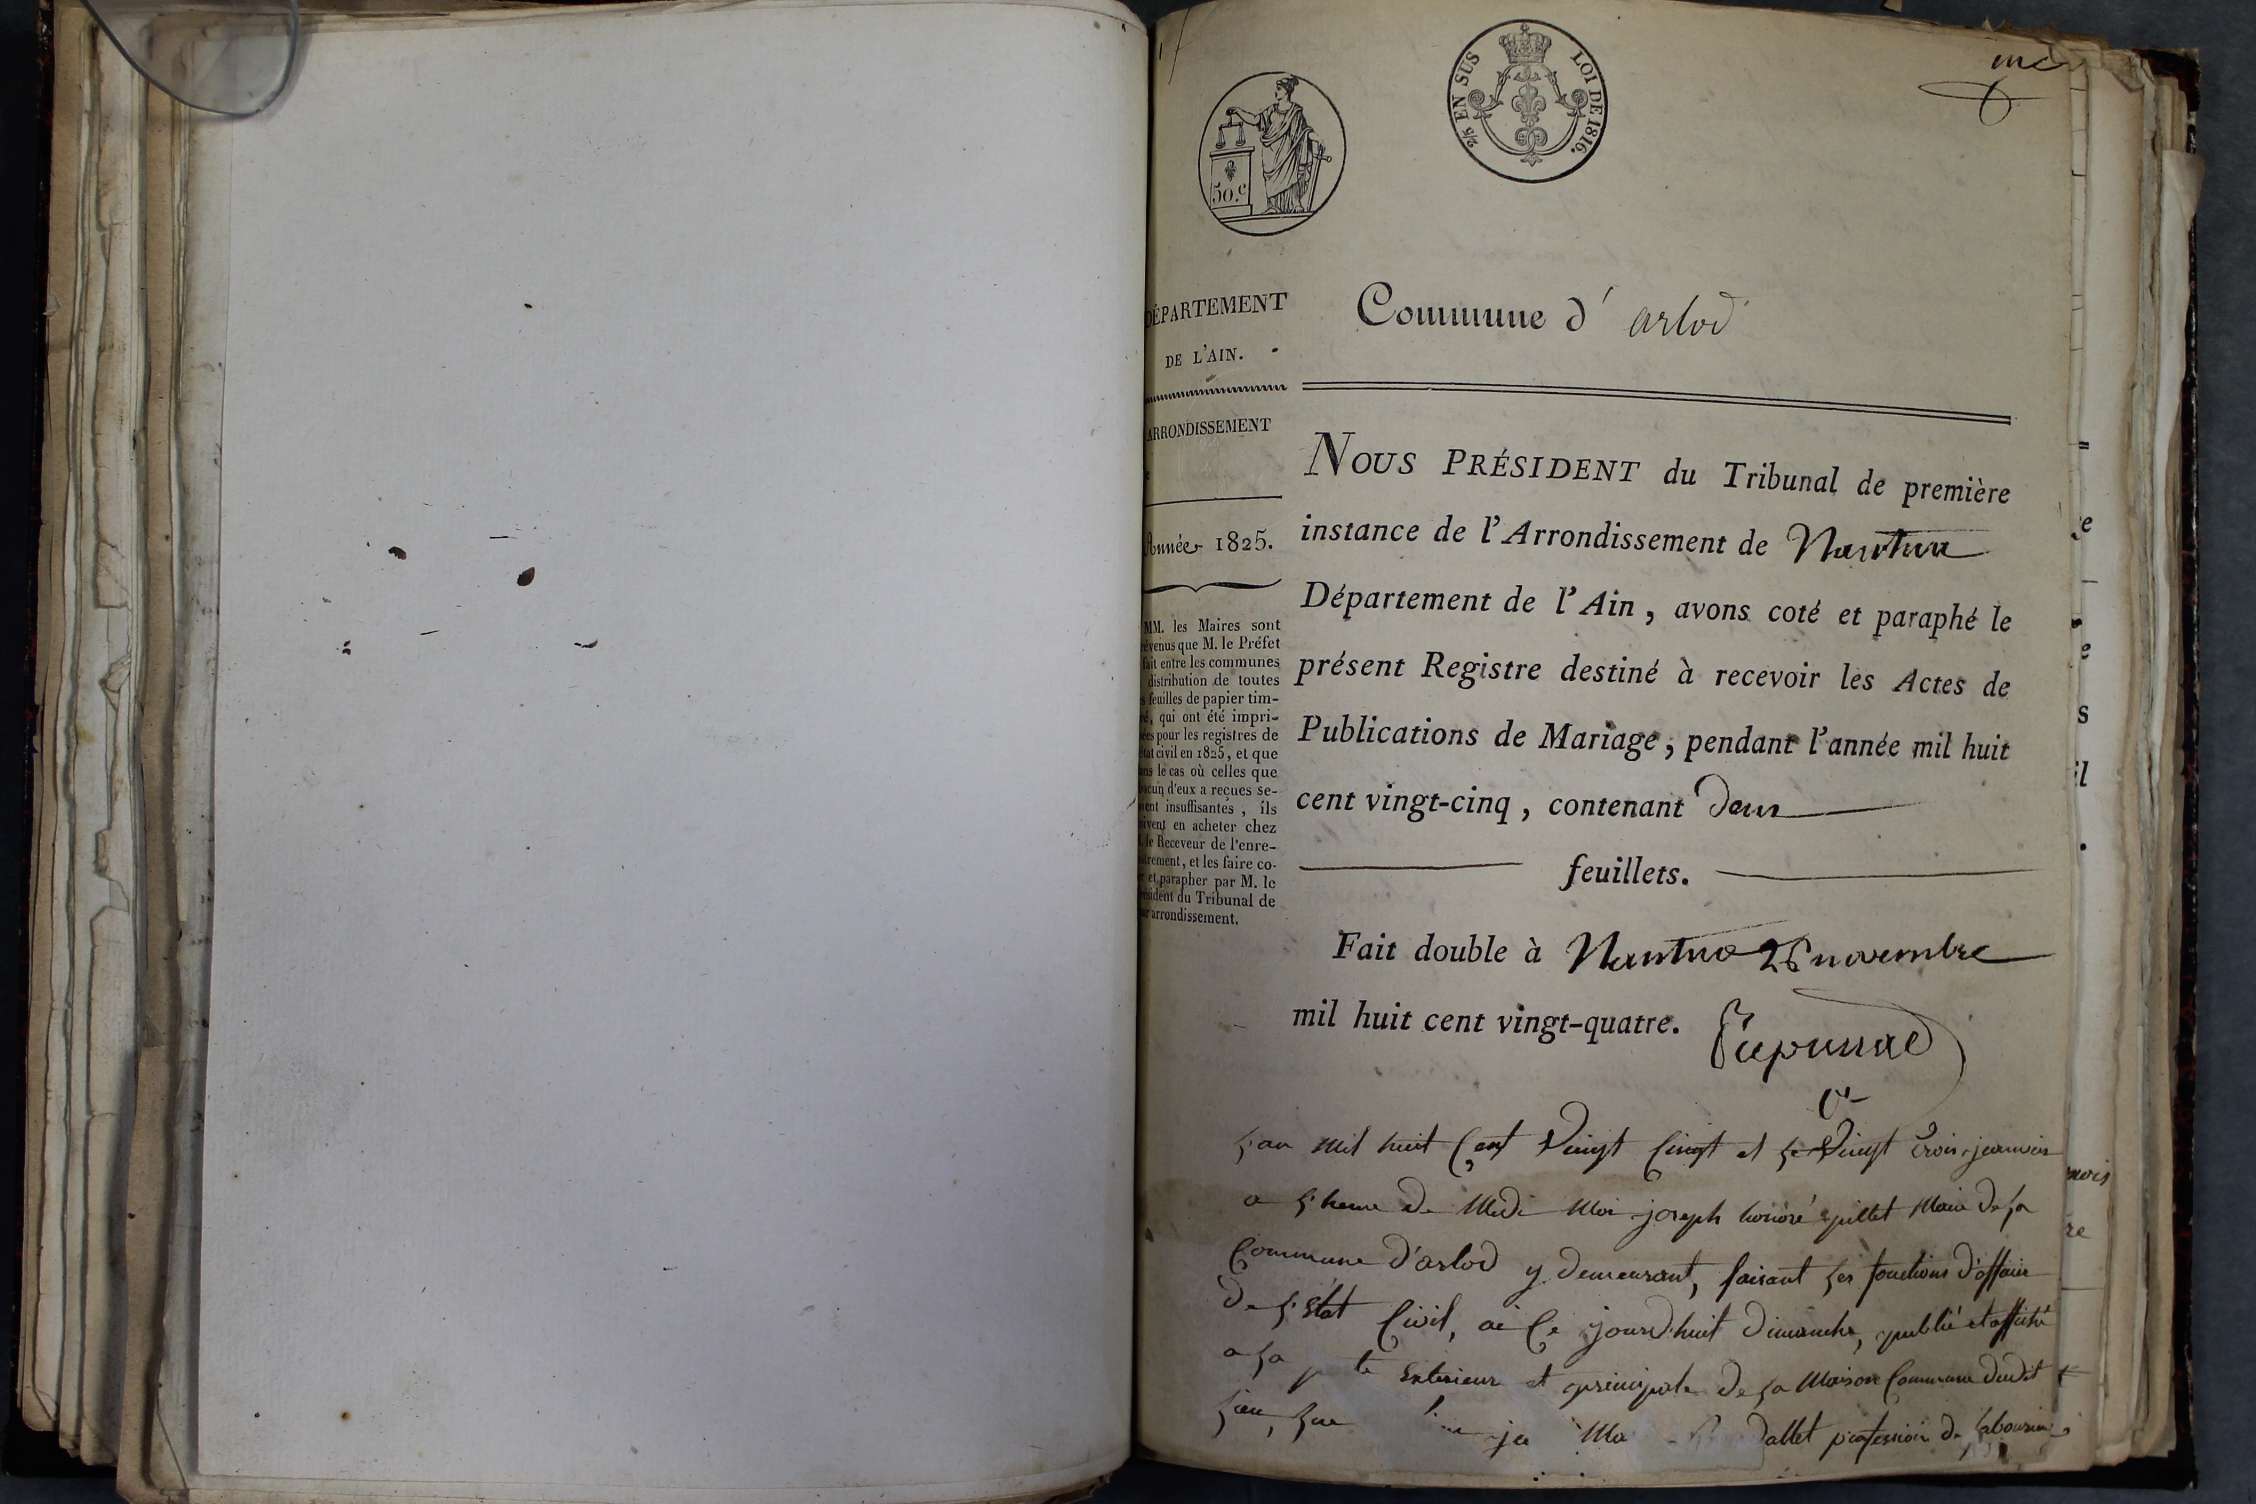 2/5 EN SUS LOI DE 1816.
50.c
DÉPARTEMENT
DE L'AIN.
ARRONDISSEMENT
Année 1825.
MM. les Maires sont
évenus que M. le Préfet
fait entre les communes
distribution de toutes
s feuilles de papier tim-
é, qui ont été impri-
ées pour les registres de
état civil en 1825, et que
ans le cas où celles que
acun d'eux a reçues se-
ient insuffisantes, ils
ivent en acheter chez
le Receveur de l'enre-
trement, et les faire co-
r et parapher par M. le
résident du Tribunal de
ur arrondissement.
Commune d' arlod
NOUS PRÉSIDENT du Tribunal de première
instance de l'Arrondissement de Nantua
Département de l'Ain, avons coté et paraphé le
présent Registre destiné à recevoir les Actes de
Publications de Mariage, pendant l'année mil huit
cent vingt-cinq, contenant deux
feuillets.
Fait double à Nantua 26 novembre
mil huit cent vingt-quatre.
L'an mil huit Cent Vingt Cinqt et le Vingt trois janvier
a l'heure de Midi Moi joseph honoré pillet Maire de la
Commune d'arlod y demeurant, faisant les fonctions d'officier
de l'état Civil, ai Ce jourd'huit dimanche, publié et affiché
a la te exterieur et principale de la Maison Commune dudit
Lieu, que Ma allet profession de laboureur